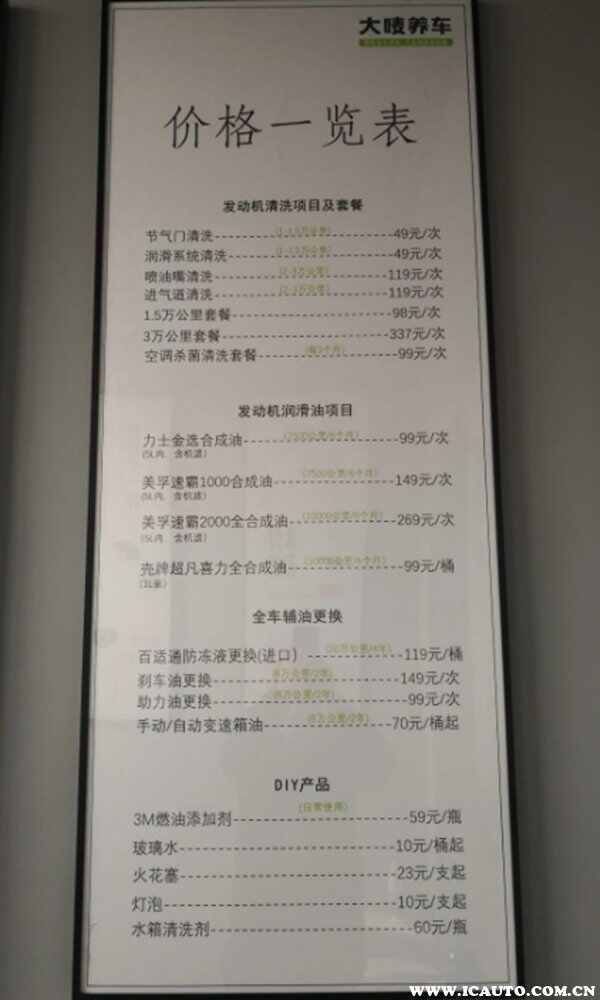 大唛养车
价格一览表
发动机清洗项目及套餐
节气门清洗 49元/次
润滑系统清洗 49元/次
喷油嘴清洗 119元/次
进气道清洗 119元/次
1.5万公里套餐 98元/次
3万公里套餐 337元/次
空调杀菌清洗套餐 99元/次
发动机润滑油项目
力士金选合成油 99元/次
(5L内、含机滤)
美孚速霸1000合成油 (7500公里/6个月) 149元/次
(5L内、含机滤)
美孚速霸2000全合成油 269元/次
(5L内、含机滤)
壳牌超凡喜力全合成油 99元/桶
(1L装)
全车辅油更换
百适通防冻液更换(进口) 119元/桶
刹车油更换 149元/次
助力油更换 99元/次
手动/自动变速箱油 70元/桶起
DIY产品
3M燃油添加剂 (日常使用) 59元/瓶
玻璃水 10元/桶起
火花塞 23元/支起
灯泡 10元/支起
水箱清洗剂 60元/瓶
www.icauto.com.cn